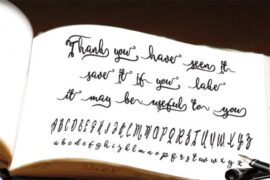 Thank you have seen it
save it if you like
it may be useful to you
A B C D E F G H I J K L M N O P Q R S T U V W X Y Z
a b c d e f g h i j k l m n o p q r s t u v w x y z